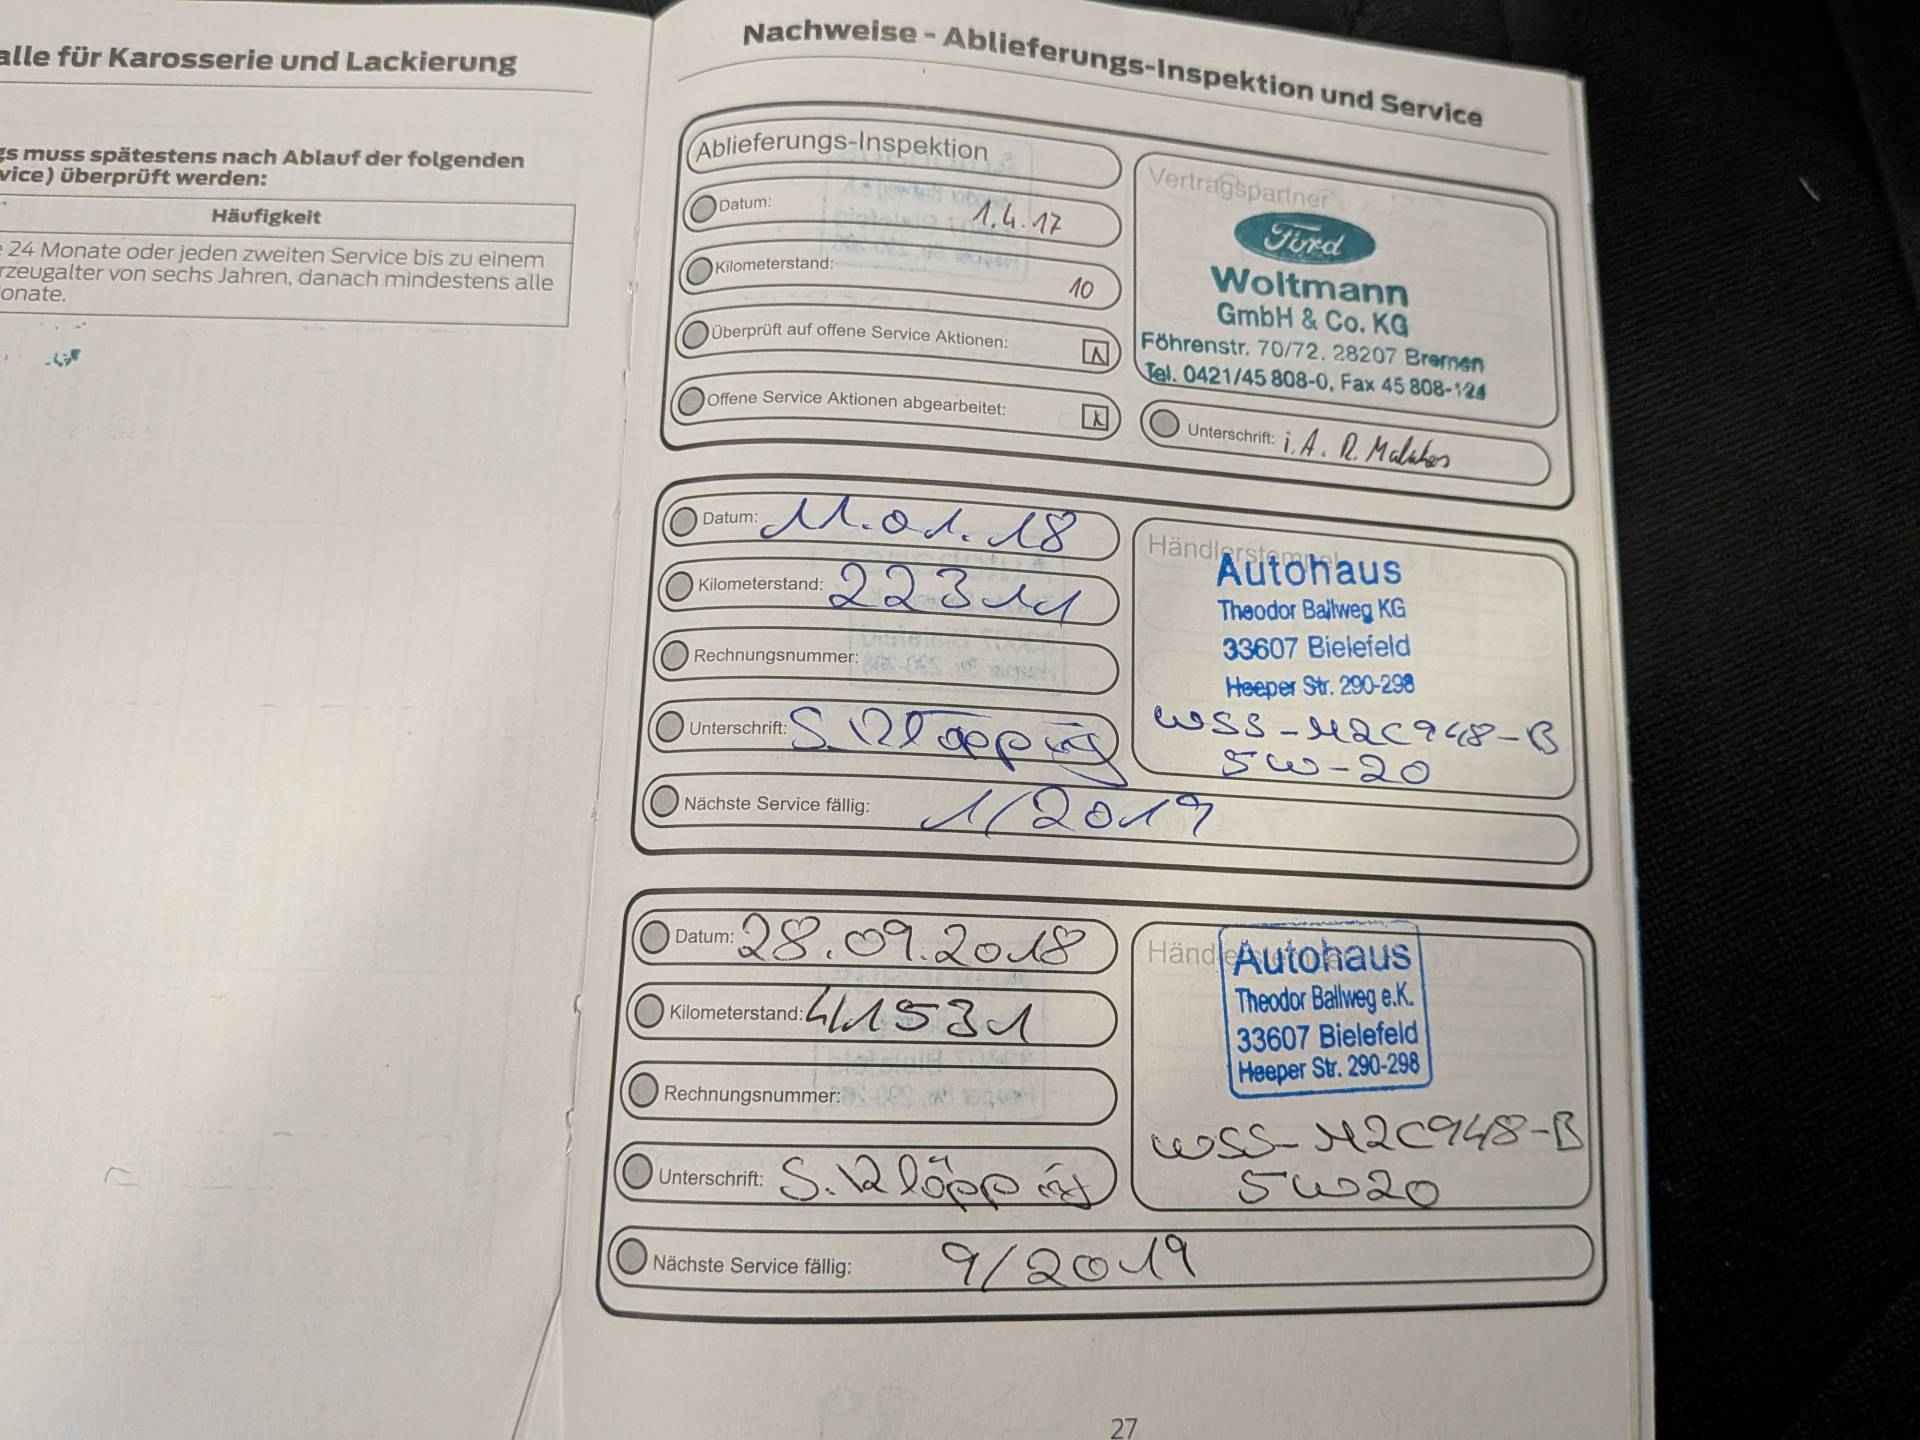 alle für Karosserie und Lackierung
gs muss spätestens nach Ablauf der folgenden
vice) überprüft werden:
Häufigkeit
e 24 Monate oder jeden zweiten Service bis zu einem
rzeugalter von sechs Jahren, danach mindestens alle
onate.
Nachweise - Ablieferungs-Inspektion und Service
Ablieferungs-Inspektion
Datum: 1.4.17
Kilometerstand: 10
Überprüft auf offene Service Aktionen:
Offene Service Aktionen abgearbeitet:
Vertragspartner
Ford
Woltmann
GmbH & Co. KG
Föhrenstr. 70/72. 28207 Bremen
Tel. 0421/45 808-0, Fax 45 808-124
Unterschrift: i.A. R.
Datum: 11.01.18
Kilometerstand: 22311
Rechnungsnummer:
Unterschrift: S. Klöpping
Händlerstempel
Autohaus
Theodor Ballweg KG
33607 Bielefeld
Heeper Str. 290-298
WSS-M2C948-B
5W-20
Nächste Service fällig: 1/2019
Datum: 28.09.2018
Kilometerstand: 41531
Rechnungsnummer:
Unterschrift: S. Klöpping
Händlerstempel
Autohaus
Theodor Ballweg e.K.
33607 Bielefeld
Heeper Str. 290-298
WSS-M2C948-B
5W20
Nächste Service fällig: 9/2019
27